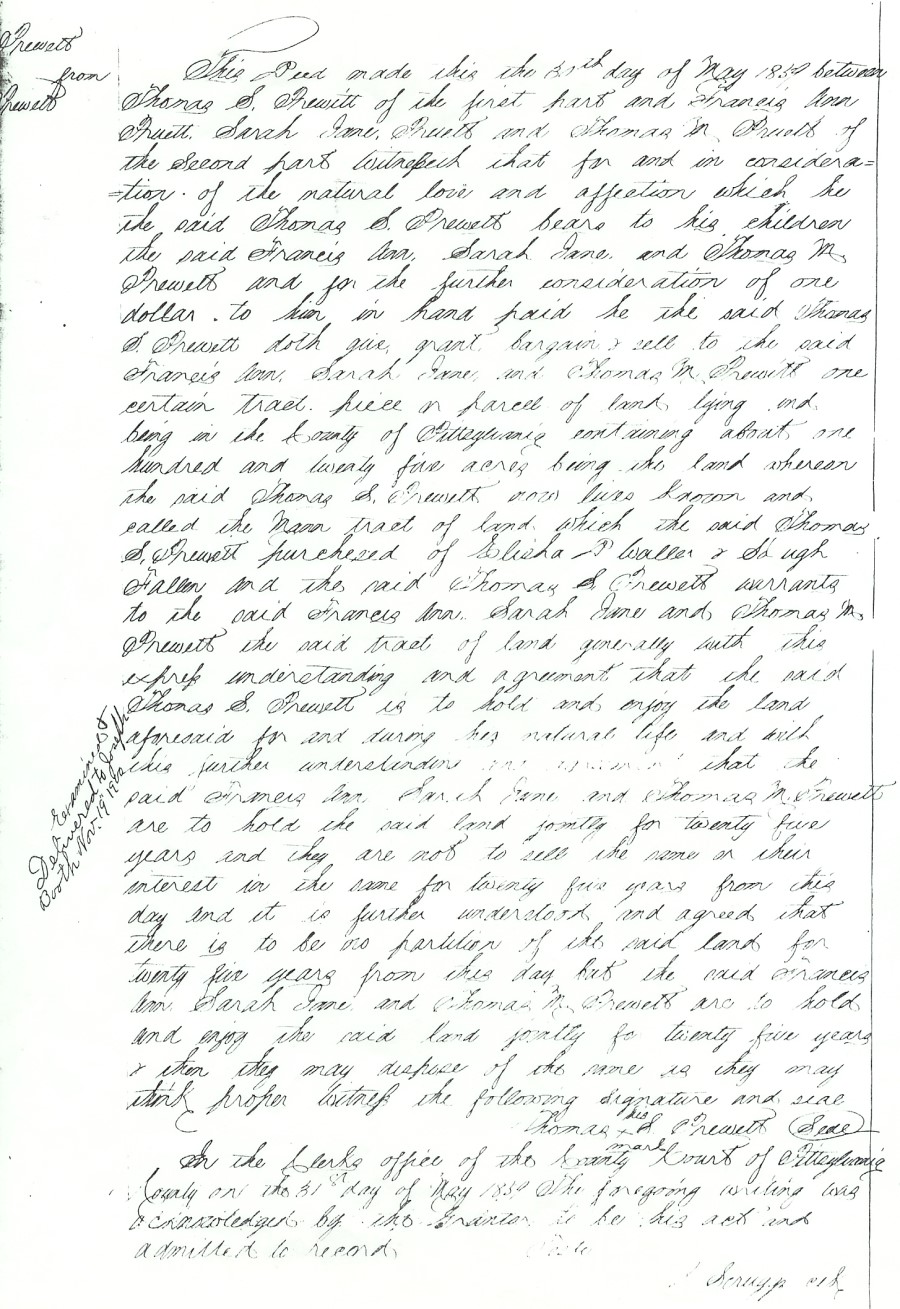 Prewett
from
Prewett
This Deed made this the 31st day of May 1859 between
Thomas S. Prewitt of the first part and Francis Ann
Pruett. Sarah Jane. Pruett and Thomas M. Pruett of
the Second part Witnesseth that for and in considera=
=tion of the natural love and affection which he
the said Thomas S. Prewett bears to his children
the said Francis Ann. Sarah Jane. and Thomas M.
Prewett and for the further consideration of one
dollar. to him in hand paid he the said Thomas
S. Prewett doth give, grant, bargain & sell to the said
Francis Ann, Sarah Jane, and Thomas M. Prewitt one
certain tract. piece or parcel of land, lying and
being in the County of Pittsylvania containing about one
hundred and twenty five acres being the land whereon
the said Thomas S. Prewett now lives known and
called the Mann tract of land which the said Thomas
S. Prewett purchesed of Elisha P Waller &
Fallen and the said Thomas S Prewett warrants
to the said Francis Ann. Sarah Jane and Thomas M.
Prewett the said tract of land generally with this
express understanding and agreement that the said
Thomas S. Prewett is to hold and enjoy the land
aforesaid for and during his natural life and with
this further understanding and agreement that the
said Francis Ann Sarah Jane and Thomas M. Prewett
are to hold the said land jointly for twenty five
years and they are not to sell the same or their
interest in the same for twenty five years from this
day and it is further understood and agreed that
there is to be no partition of the said land for
twenty five years from this day but the said Francis
Ann Sarah Jane and Thomas M. Prewett are to hold
and enjoy the said land jointly fo twenty five years
& then they may dispose of the same as they may
think proper Witness the following signature and seal
his
Thomas x S. Prewett (Seal)
mark
In the Clerks office of the County Court of Pittsylvania
County on the 31st day of May 1859 The foregoing writing was
acknowledged by the Grantor to be his act and
admitted to record
Teste
Scruggs clk
Examined &
Delivered to Joseph
Booth Nov. 19